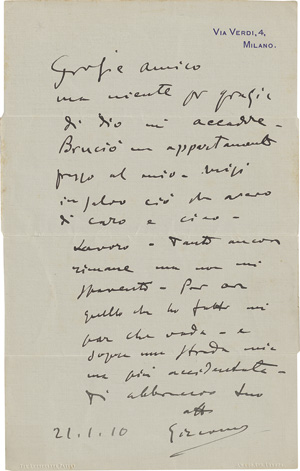 VIA VERDI, 4,
MILANO.
Grazie amico
ma niente per grazia
di Dio mi accadde -
Bruciò un appartamento
presso al mio - misi
in salvo ciò che avevo
di caro e ciao -
Lavoro - Tanto ancora
rimane ma non mi
spavento - Per ora
quello che ho fatto mi
par che vada - e
sopra una strada mia
ma più accidentata -
Ti abbraccio tuo
aff
21.1.10 Giacomo